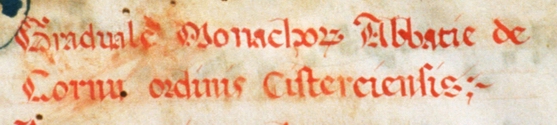 Graduale Monachoꝝ Abbatie de
Cornu ordinis Cisterciensis;~